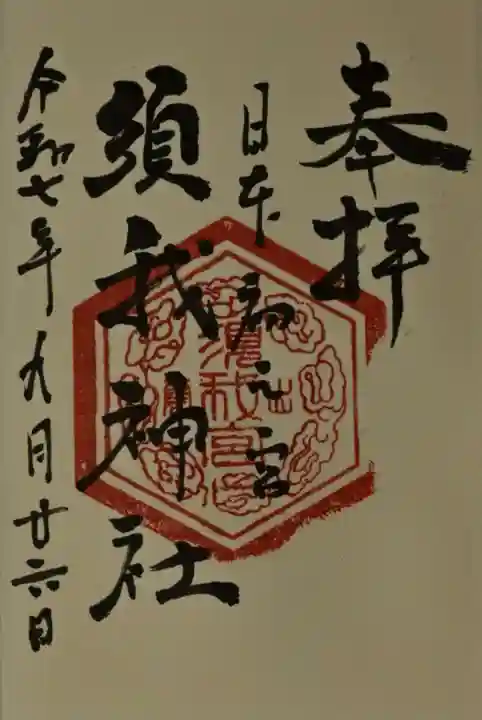 奉拝
日本初之宮
須我神社
令和七年九月廿六日
須我宮